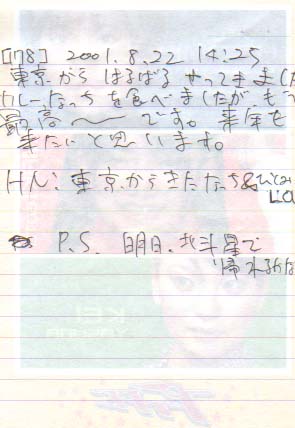 [178] 2001.8.22 14:25
東京からはるばるやってきました
カレーなっちを食べましたが、もう
最高〜〜です。来年も
来たいと思います。
HN: 東京からきたなっち&ひとみ
P.S. 明日、北斗星で
帰れるかな
KEI